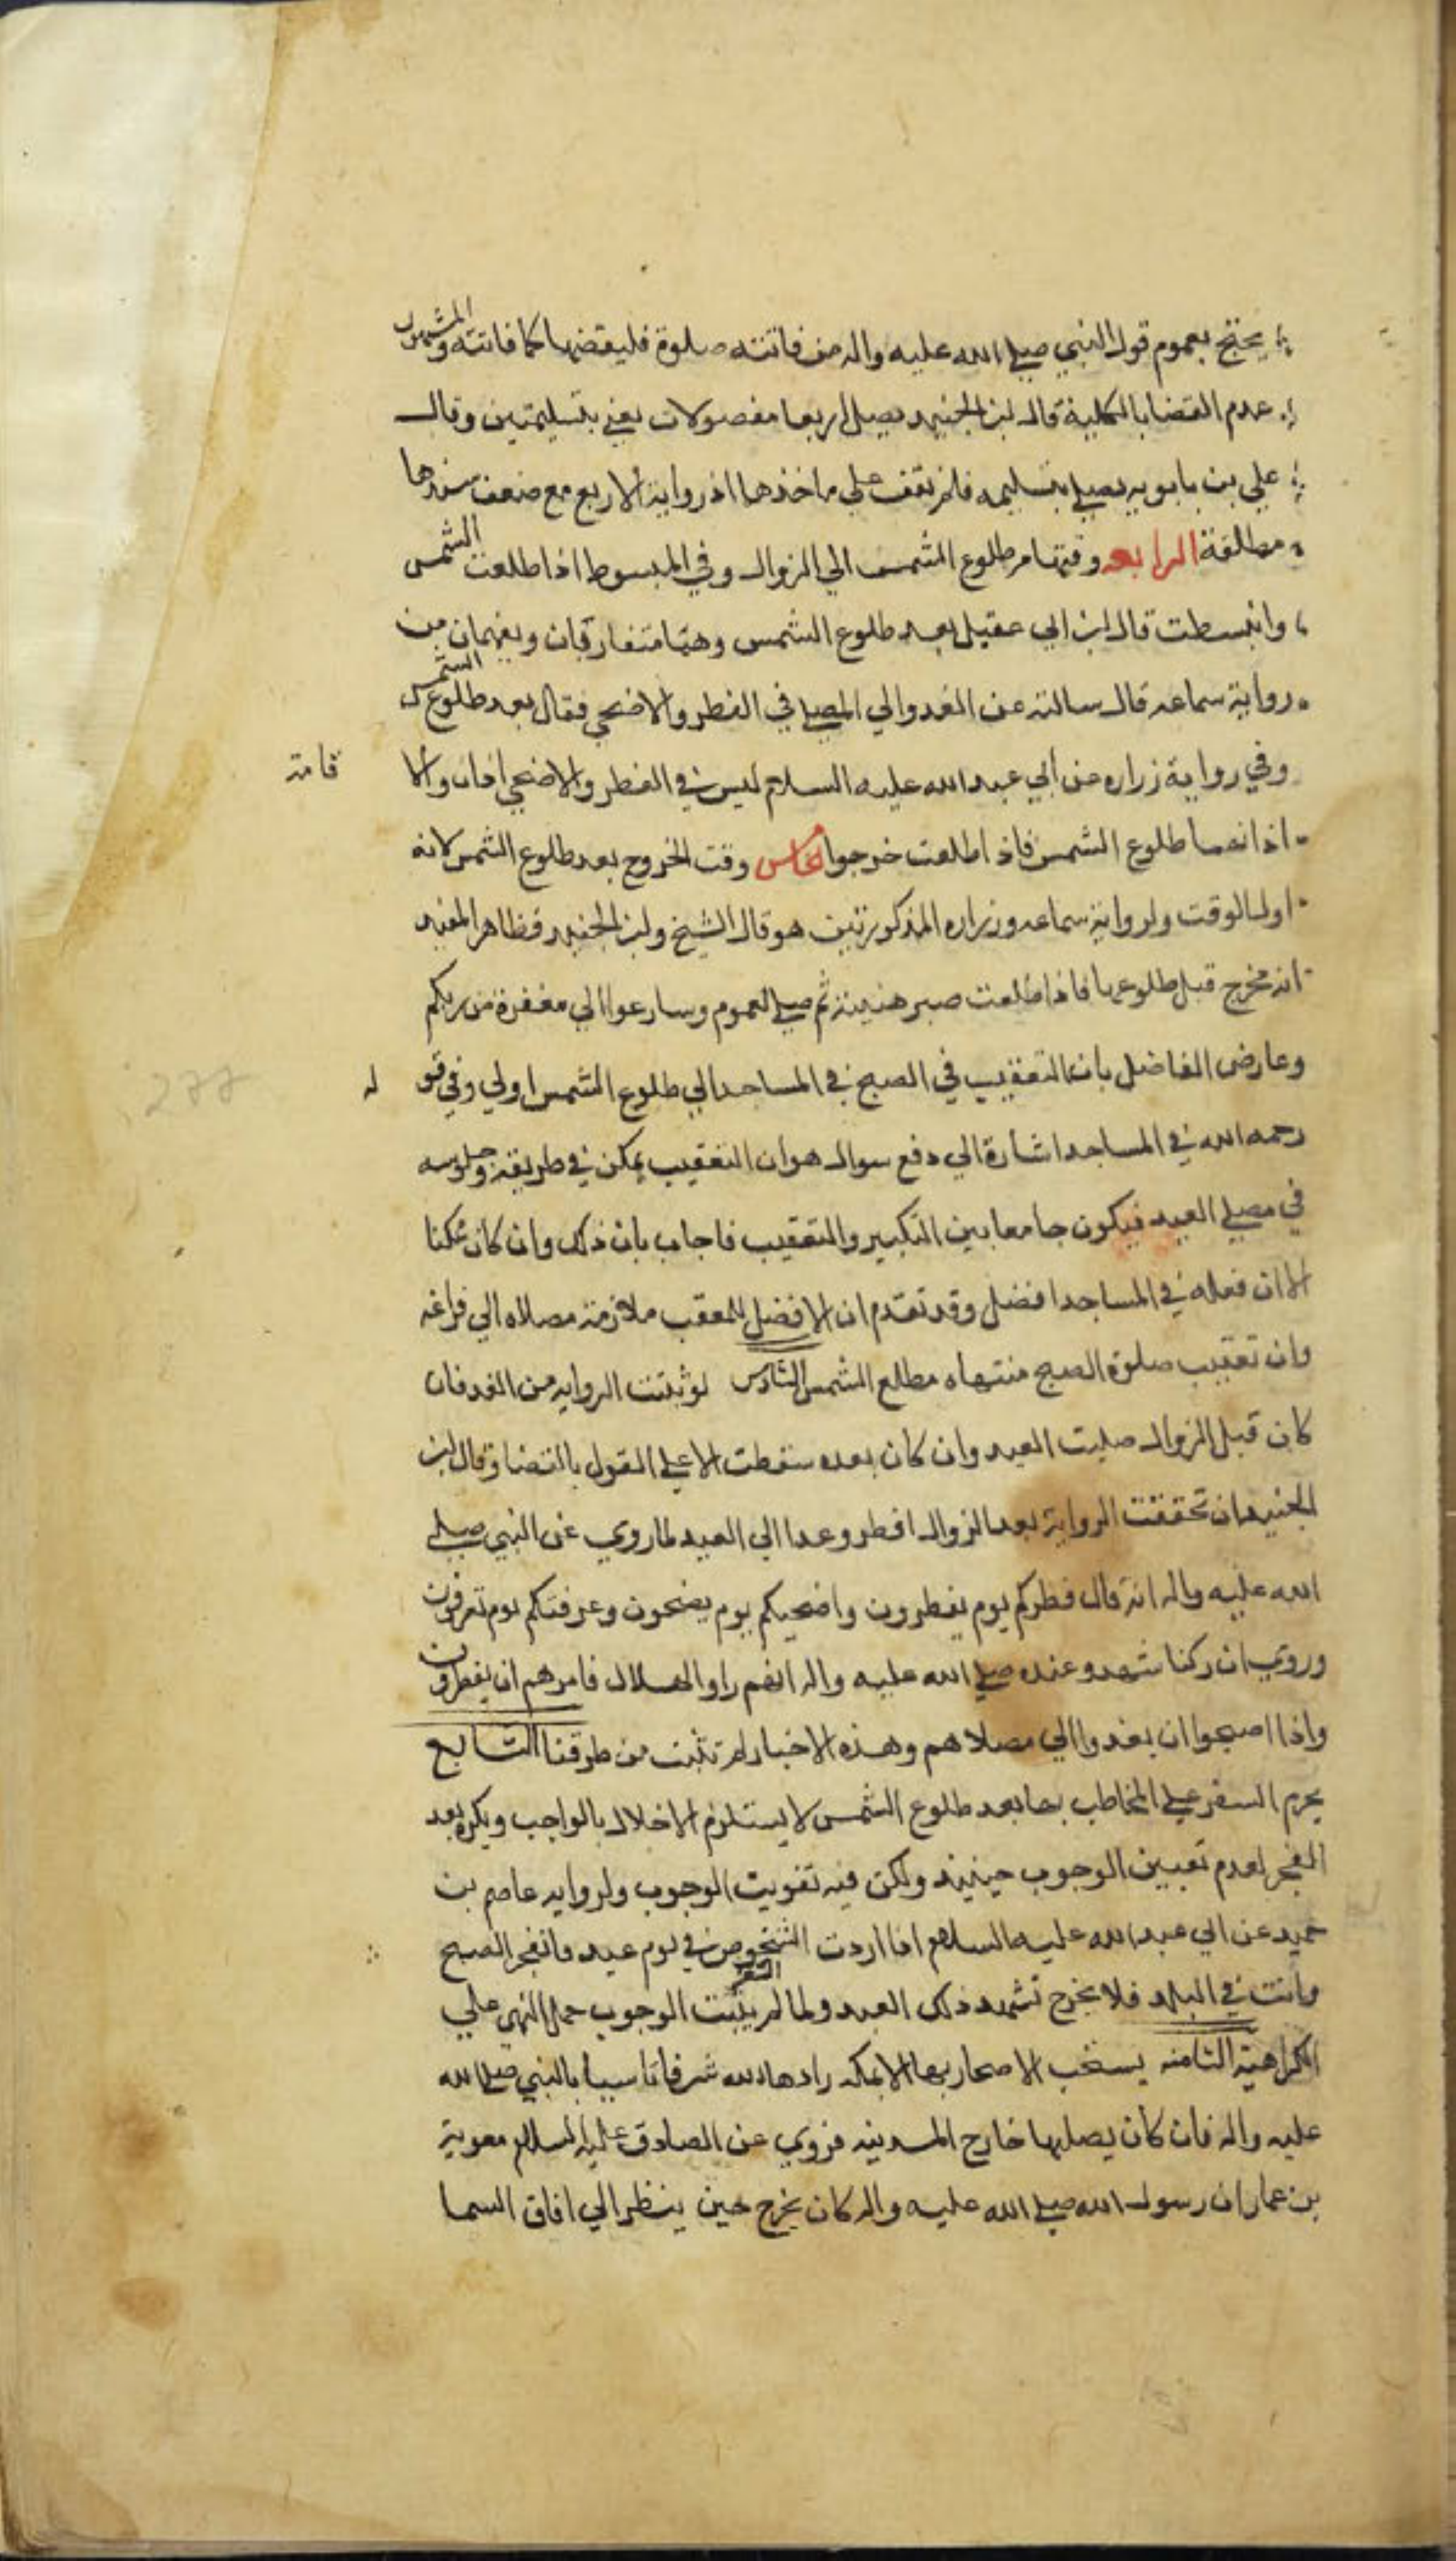 يحتج بعموم قول النبي صلى الله عليه واله من فاتته صلوة فليقضها كما فاتته والمشهور
عدم القضا بالكلية قال ابن الجنيد يصلي اربعا مفصولات يعني بتسليمتين وقال
علي بن بابويه يصلي بتسليمه فلم نقف علي ماخذهما اذ رواية الاربع مع ضعف سندها
مطلقة الرابعه وقتها من طلوع الشمس الي الزوال وفي المبسوط اذا طلعت الشمس
وانبسطت قال ابن ابي عقيل بعد طلوع الشمس وهما متقاربان ويفهمان من
رواية سماعه قال سالته عن الغدو الي المصلي في الفطر والاضحي فقال بعد طلوع الشمس
وفي رواية زراره عن ابي عبد الله عليه السلام ليس في الفطر والاضحي اذان ولا اقامة
اذانهما طلوع الشمس فاذا طلعت خرجوا الخامس وقت الخروج بعد طلوع الشمس لانه
اول الوقت ولرواية سماعه وزراره المذكورتين هو قال الشيخ وابن الجنيد فظاهر المفيد
انه يخرج قبل طلوعها فاذا طلعت صبر هنيئة ثم صلي لعموم وسارعوا الي مغفرة من ربكم
وعارض الفاضل بان التعقيب في الصبح في المساجد الي طلوع الشمس اولي وفي قوله
رحمه الله في المساجد اشارة الي دفع سوال هو ان التعقيب يمكن في طريقه وجلوسه
في مصلي العيد فيكون جامعا بين التكبير والتعقيب فاجاب بان ذلك وان كان ممكنا
الا ان فعله في المساجد افضل وقد تقدم ان الافضل للمعقب ملازمة مصلاه الي فراغه
وان تعقيب صلوة الصبح منتهاه مطلع الشمس السادس لو ثبتت الروايه من الغد فان
كان قبل الزوال صليت العيد وان كان بعده سقطت الا علي القول بالقضا وقال ابن
الجنيد ان تحققت الرواية بعد الزوال افطر وغدا الي العيد لما روي عن النبي صلي
الله عليه واله انه قال فطركم يوم يفطرون واضحيكم يوم يضحون وعرفتكم يوم تعرفون
وروي ان ركبا شهدو عنده صلي الله عليه واله انهم راو الهلال فامرهم ان يفطرون
واذا اصبحوا ان يغدوا الي مصلاهم وهذه الاخبار لم تثبت من طرقنا السابع
يحرم السفر علي المخاطب بها بعد طلوع الشمس لا يستلزم الاخلال بالواجب ويكره بعد
الفجر لعدم تعيين الوجوب حينيذ ولكن فيه تفويت الوجوب ولروايه عاصم بن
حميد عن ابي عبد الله عليه السلام اذا اردت الشخوص في يوم عيد فانفجر الصبح
وانت في البلد فلا تخرج تشهد ذلك العيد ولما لم يثبت الوجوب حمل النهي علي
الكراهية الثامنه يستحب الاصحار بها الا بمكه زادها الله شرفا تاسيا بالنبي صلي الله
عليه واله فان كان يصليها خارج المدينه فروي عن الصادق عليه السلام معوية
بن عمار ان رسول الله صلي الله عليه واله كان يخرج حين ينظر الي افاق السما